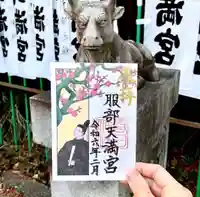 満宮
満宮
奉拝
服部天満宮
令和六年二月